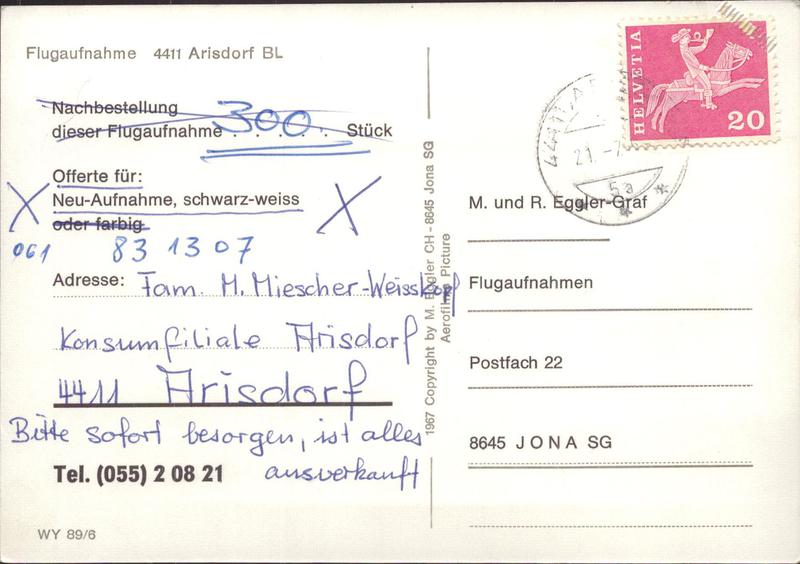 Flugaufnahme 4411 Arisdorf BL
Nachbestellung
dieser Flugaufnahme 300 Stück
Offerte für:
Neu-Aufnahme, schwarz-weiss
oder farbig
061 83 13 07
Adresse: Fam. M. Miescher-Weisskopf
Konsumfiliale Arisdorf
4411 Arisdorf
Bitte sofort besorgen, ist alles
ausverkauft
Tel. (055) 2 08 21
WY 89/6
1967 Copyright by M. Eggler CH - 8645 Jona SG
Aerofilms Picture
HELVETIA
20
21.
5a
M. und R. Eggler-Graf
Flugaufnahmen
Postfach 22
8645 JONA SG